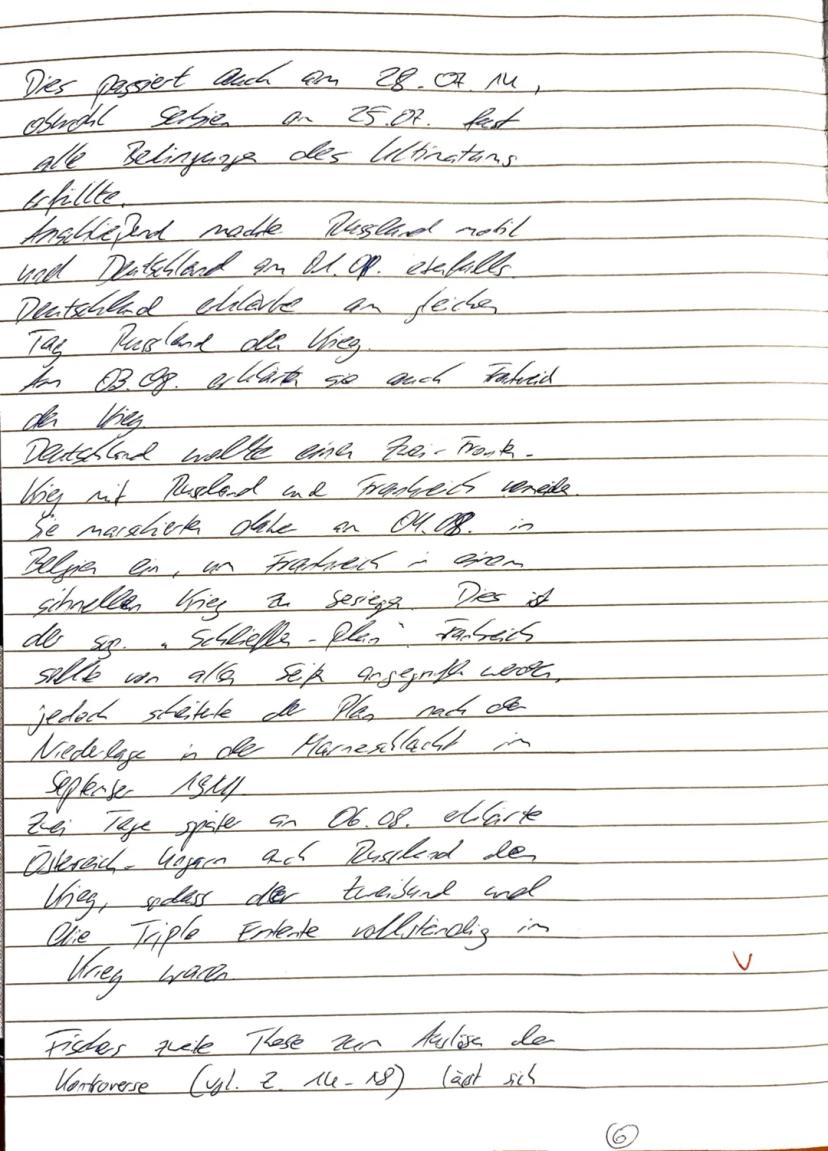 Dies passiert auch am 28.07.14,
obwohl Serbien am 25.07. fast
alle Bedingungen des Ultimatums
erfüllte.
Anschließend machte Russland mobil
und Deutschland am 01.08. ebenfalls.
Deutschland erklärte am gleichen
Tag Russland den Krieg.
Am 03.08. erklärten sie auch Frankreich
den Krieg
Deutschland wollte einen Zwei-Front-
Krieg mit Russland und Frankreich vermeiden.
Sie marschierten daher am 04.08. in
Belgien ein, um Frankreich in einem
schnellen Krieg zu besiegen. Dies ist
der sog. „Schlieffen-Plan". Frankreich
sollte von allen Seiten angegriffen werden,
jedoch scheiterte der Plan nach der
Niederlage in der Marneschlacht im
September 1914.
Zwei Tage später am 06.08. erklärte
Österreich-Ungarn auch Russland den
Krieg, sodass der Zweibund und
die Triple Entente vollständig im
Krieg waren.
V
Fischers zweite These zum Auslösen der
Kontroverse (vgl. Z. 14-18) lässt sich
6